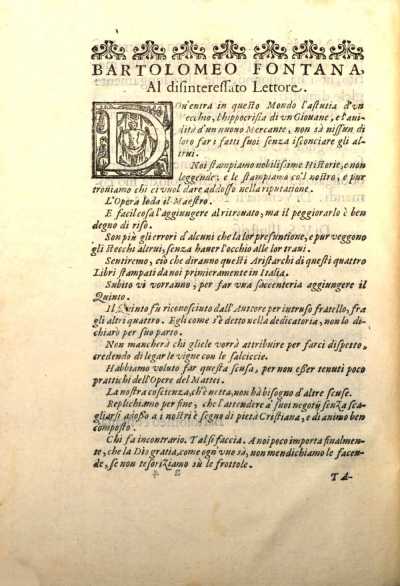 BARTOLOMEO FONTANA,
Al disinteressato Lettore.
DOu'entra in questo Mondo l'astutia d'vn
Vecchio, l'hippocrisia di vn Giouane, e l'aui-
dità d'vn nuouo Mercante, non sà nissun di
loro far i fatti suoi senza isconciare gli al-
trui.
Noi stampiamo nobilissime Historie, e non
leggende; e le stampiamo co'l nostro, e pur
trouiamo chi ci vuol dare addosso nella riputatione.
L'Opera loda il Maestro.
E facil cosa l'aggiungere al ritrouato, ma il peggiorarlo è ben
degno di riso.
Son più gli errori d'alcuni che la lor presuntione, e pur veggono
gli stecchi altrui, senza hauer l'occhio alle lor traui.
Sentiremo, ciò che diranno questi Aristarchi di questi quattro
Libri stampati da noi primieramente in Italia.
Subito vi vorranno, per far vna saccenteria aggiungere il
Quinto.
Il Quinto fu riconosciuto dall'Auttore per intruso fratello, fra
gli altri quattro. Egli come s'è detto nella dedicatoria, non lo di-
chiarò per suo parto.
Non mancherà chi gliele vorrà attribuire per farci dispetto,
credendo di legar le vigne con le salciccie.
Habbiamo voluto far questa scusa, per non esser tenuti poco
prattichi dell'Opere del Mattei.
La nostra coscienza, ch'è netta, non hà bisogno d'altre scuse.
Replichiamo per fine, che l'attendere a' suoi negotij senza sca-
gliarsi adosso a i nostri è segno di pietà Cristiana, e di animo ben
composto.
Chi fa incontrario. Tal si faccia. A noi poco importa finalmen-
te, che la Dio gratia, come ogn'vno sà, non mendichiamo le facen-
de, se non tesoriziamo sù le frottole.
TA-